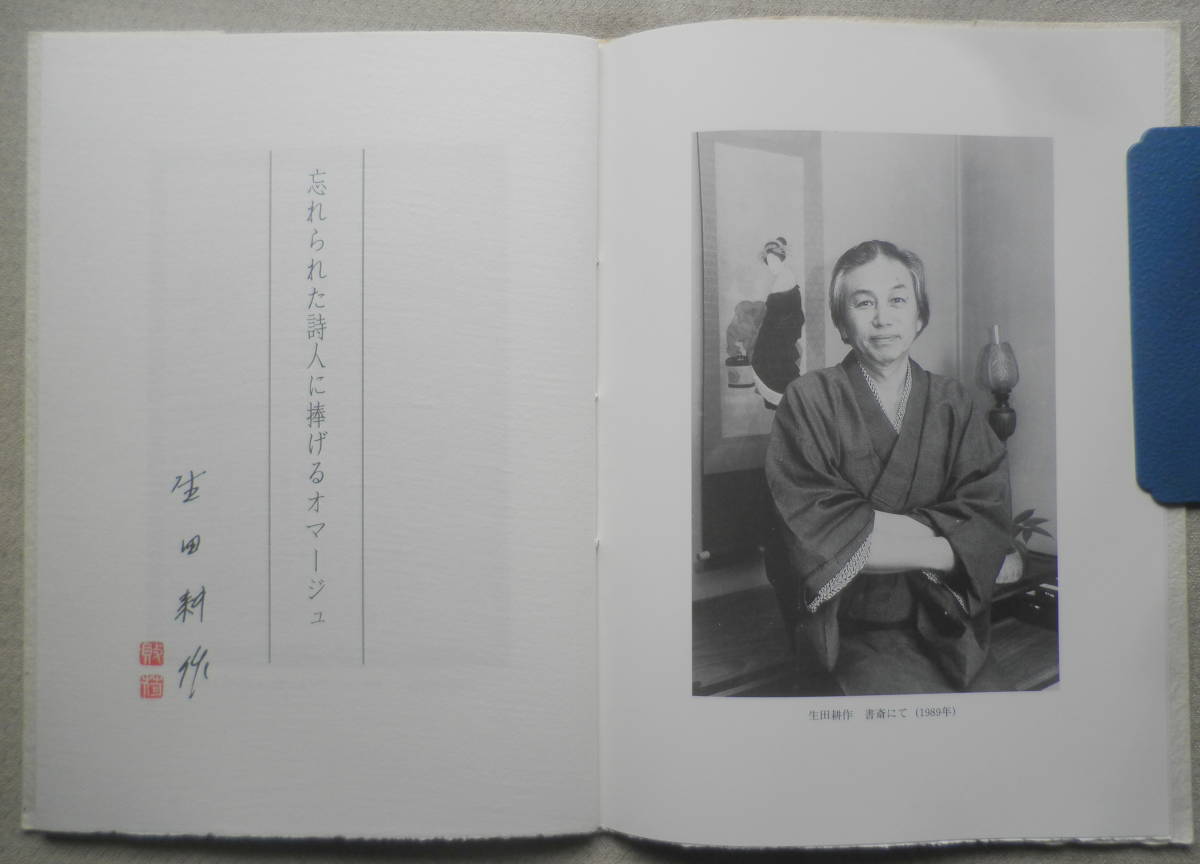 忘れられた詩人に捧げるオマージュ
生田耕作
生田耕作 書斎にて (1989年)